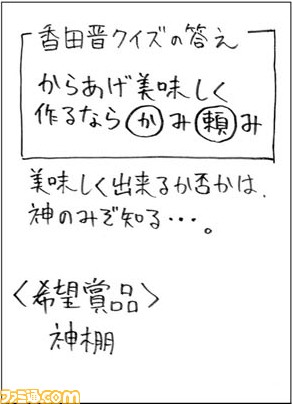 香田晋クイズの答え
からあげ美味しく
作るならかみ頼み
美味しく出来るか否かは、
神のみぞ知る・・・。
〈希望賞品〉
神棚
ファミ通.com